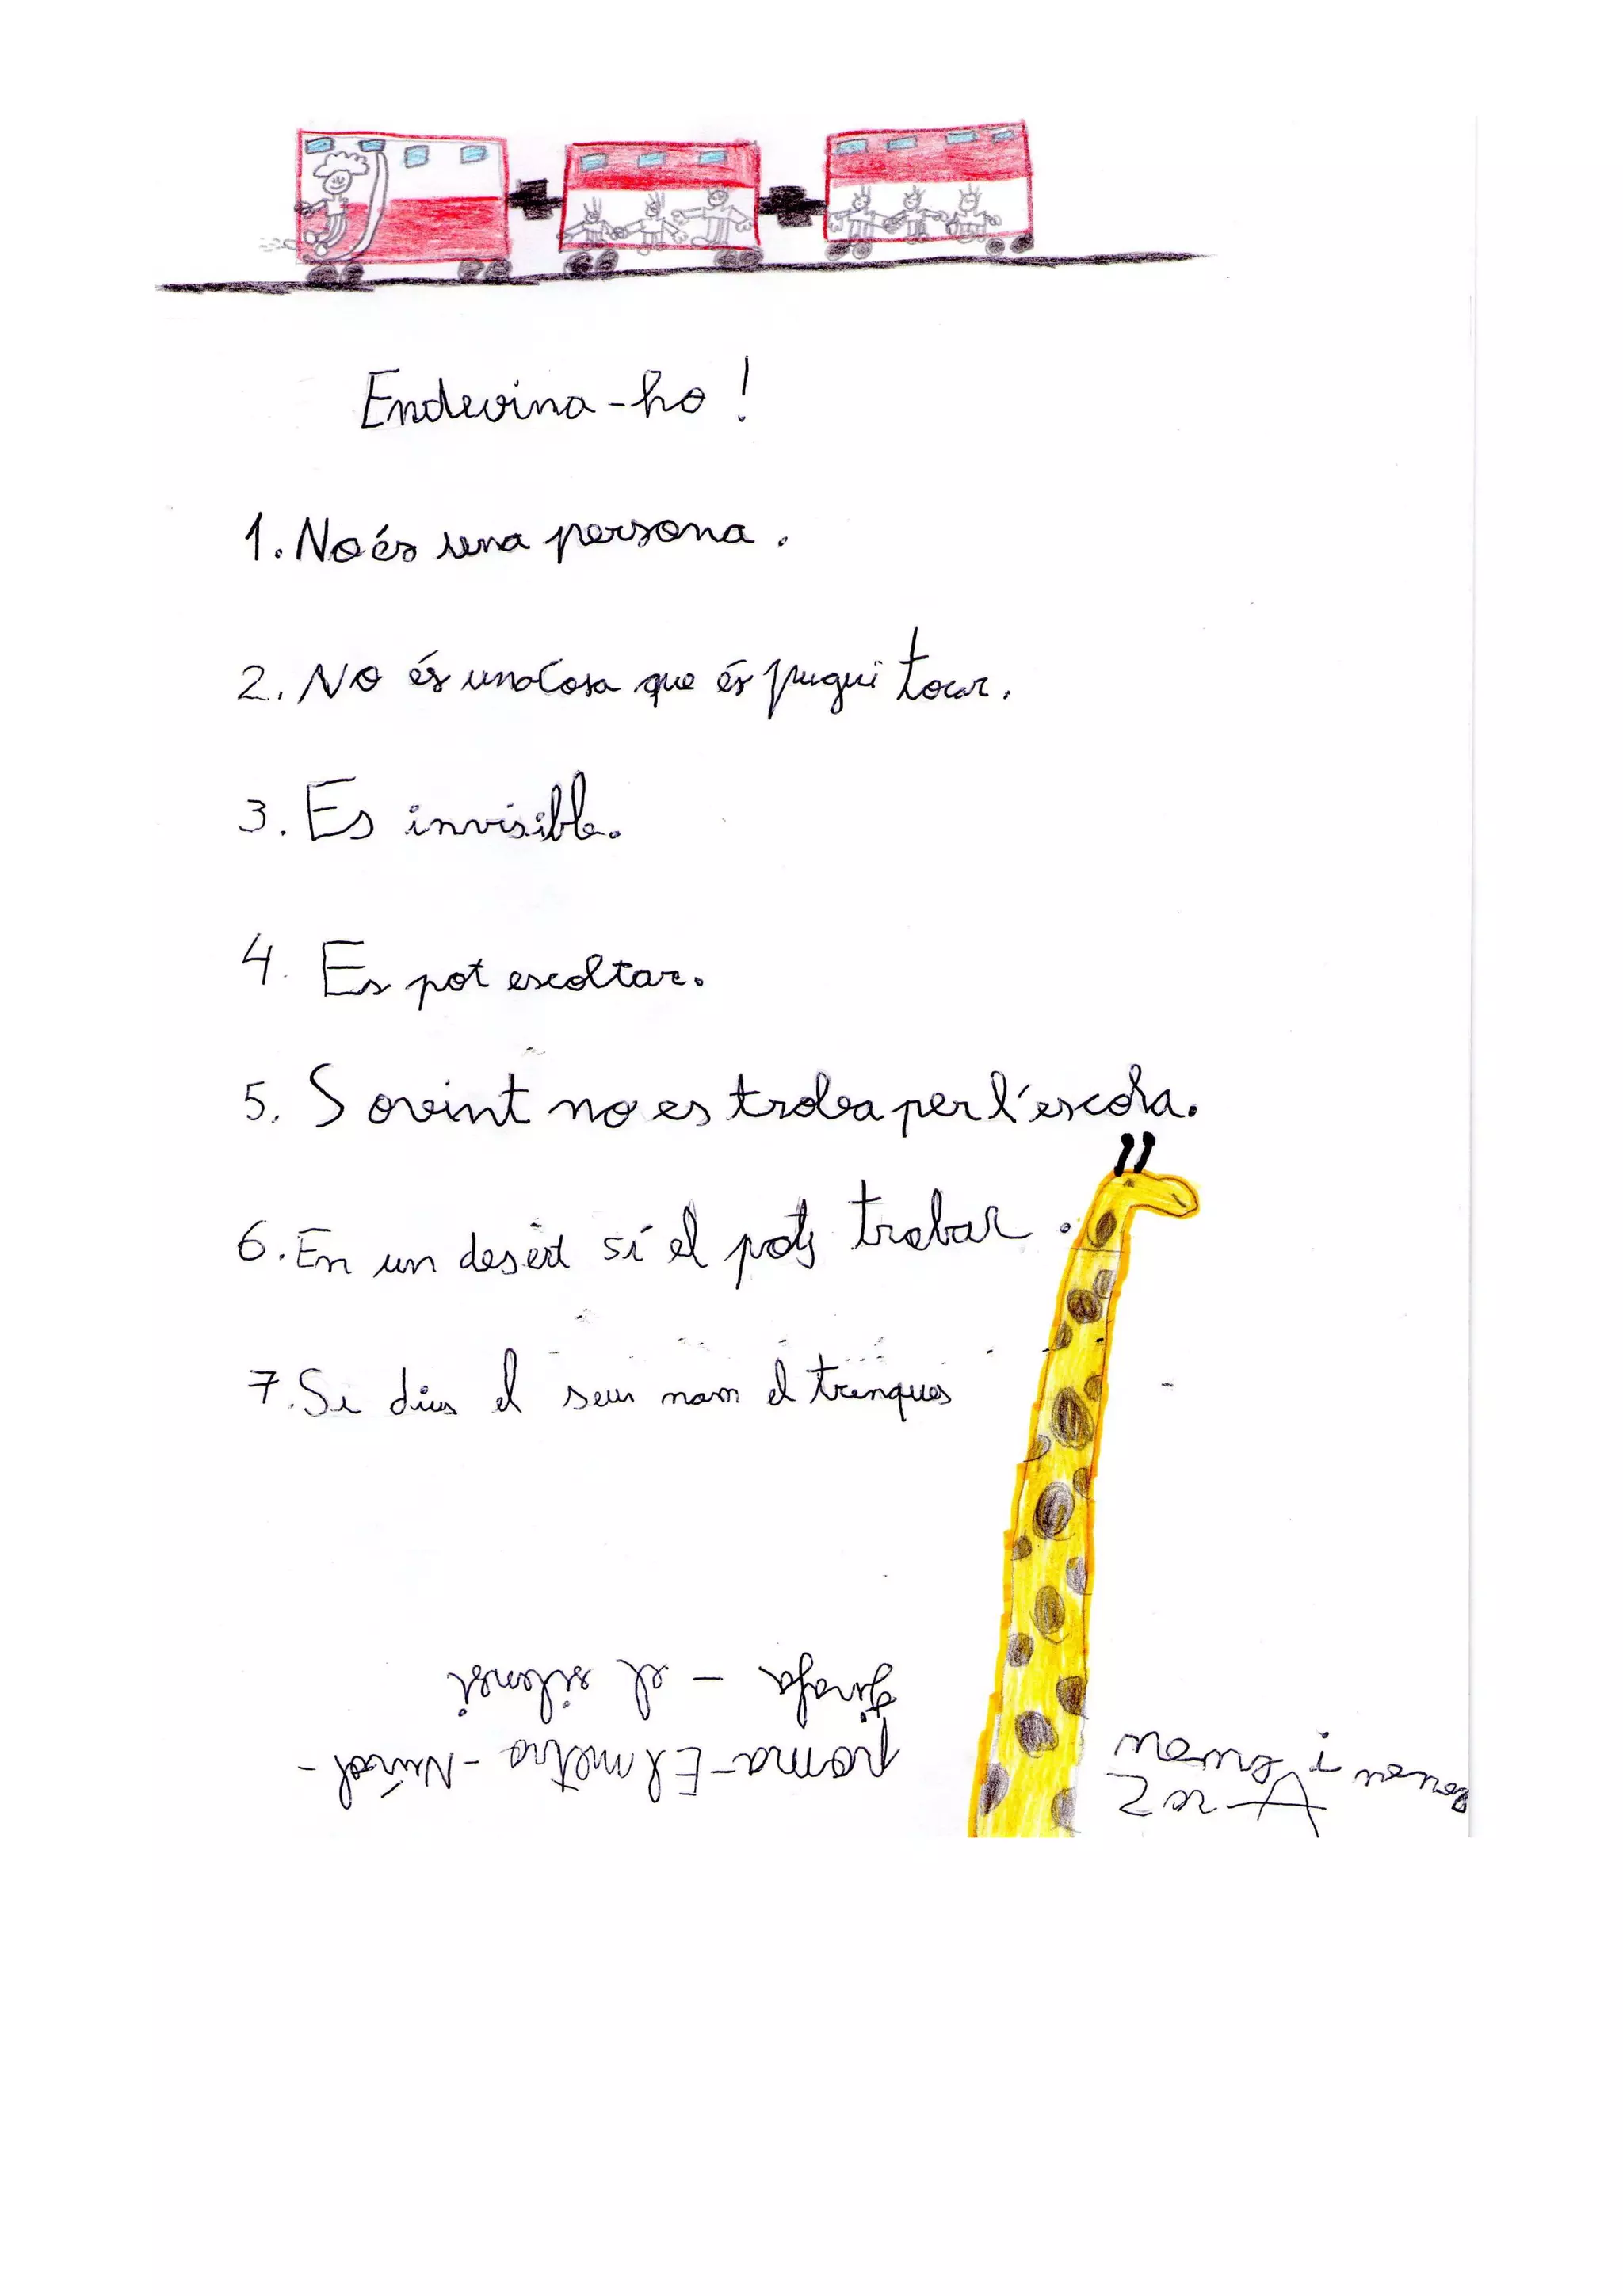 Endevina-ho!
1. No és una persona.
2. No és una cosa que és pugui tocar.
3. Es invisible.
4. Es pot escoltar.
5. Sovint no es troba per l'escola.
6. En un desert sí el pots trobar.
7. Si dius el seu nom el trenques
poma - El metro - Núvol -
girafa - el silenci
nens i nenes
2n A